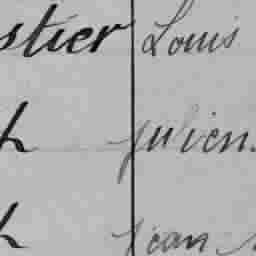 stier Louis
h Julien.
h Jean